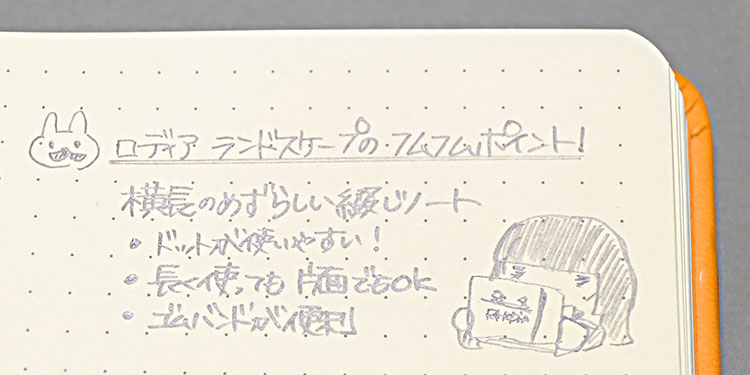 ロディア ランドスケープの フムフムポイント!
横長のめずらしい綴じノート
・ドットが使いやすい!
・長く使っても 片面でもOK
・ゴムバンドが便利